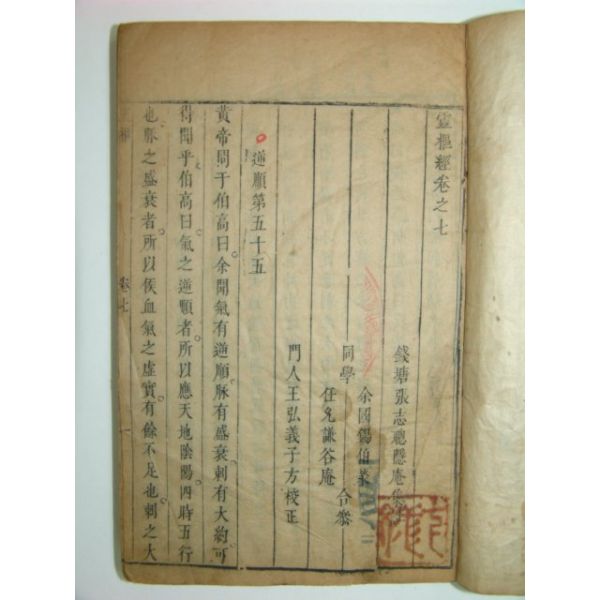 靈樞經卷之七
錢塘張志聰隱庵集註
余國錫伯榮
同學
合叅
任允謙谷庵
門人王弘義子方校正
逆順第五十五
黃帝問于伯高曰余聞氣有逆順脉有盛衰刺有大約可
得聞乎伯高曰氣之逆順者所以應天地陰陽四時五行
也脉之盛衰者所以候血氣之虛實有餘不足也刺之大
卷七